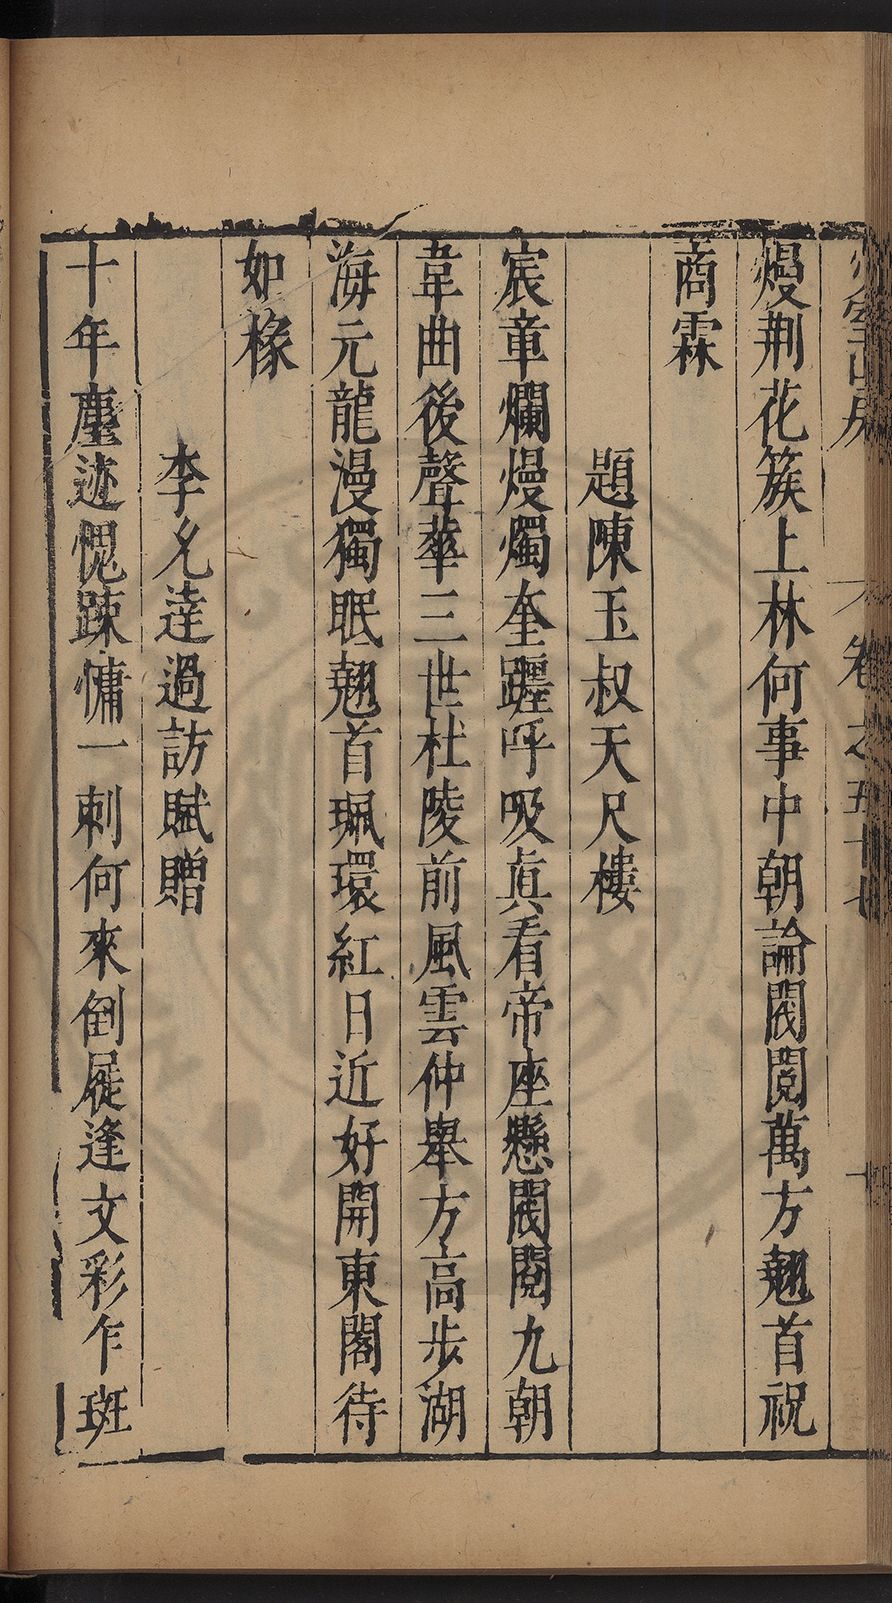 熳荆花簇上林何事中朝論閥閱萬方翹首祝
商霖
題陳玉叔天尺樓
宸章爛熳燭奎躔呼吸眞看帝座懸閥閱九朝
韋曲後聲華三世杜陵前風雲仲舉方高步湖
海元龍漫獨眠翹首珮環紅日近好開東閣待
如椽
李允達過訪賦贈
十年塵迹愧踈慵一刺何來倒屣逢文彩乍班
卷之五十七